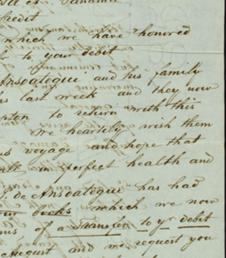 credit
which we have honored
to your debit
Ansoategui and his family
last week and they now
to return with this
We heartily wish them
voyage and hope that
in perfect health and
de Ansoategui has had
books which we now
of a transfer to yr debit
August and we request you